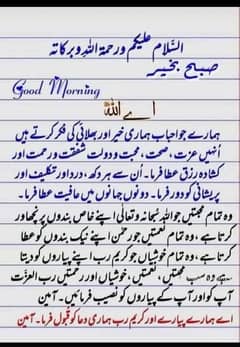 السّلام علیکم ورحمۃ اللہ وبرکاتہ
صبح بخیر
Good Morning
اے اللہ
ہمارے جو احباب ہماری خیر اور بھلائی کی فکر کرتے ہیں
اُنہیں عزت، صحت، محبت و دولت شفقت ورحمت اور
کشادہ رزق عطا فرما۔ اُن سے ہر دکھ، درد اور تکلیف اور
پریشانی کو دور فرما۔ دونوں جہانوں میں عافیت عطا فرما۔
وہ تمام محبتیں جو اللہ سُبحانہ وتعالیٰ اپنے خاص بندوں پر نچھاور
کرتا ہے، وہ تمام نعمتیں جو رحمٰن اپنے نیک بندوں کو عطا
کرتا ہے، وہ تمام خوشیاں جو کریم رب اپنے پیاروں کو دیتا
ہے وہ سب محبتیں، نعمتیں، خوشیاں اور رحمتیں رب العزّت
آپ کو اور آپ کے پیاروں کو نصیب فرمائیں۔ آمین
اے ہمارے پیارے اور کریم رب ہماری دعا کو قبول فرما۔ آمین